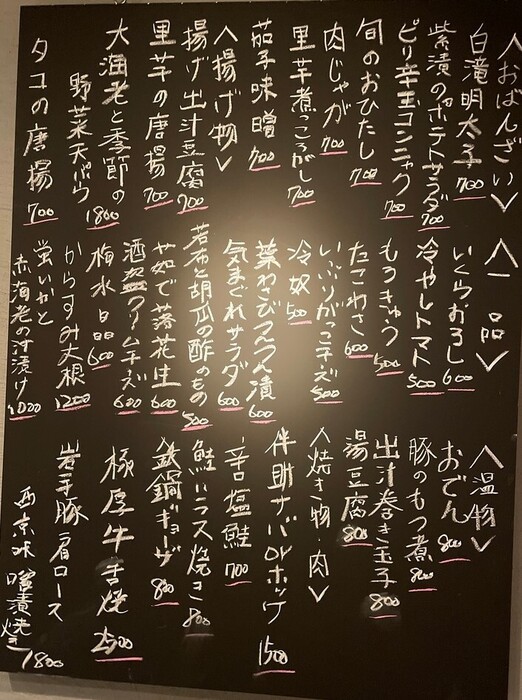 〈おばんざい〉
白滝明太子 700
紫漬のポテトサラダ 700
ピリ辛玉コンニャク 700
旬のおひたし 700
肉じゃが 700
里芋煮っころがし 700
茄子味噌 700
〈揚げ物〉
揚げ出汁豆腐 700
里芋の唐揚 700
大海老と季節の
野菜天ぷら 1800
タコの唐揚 700
〈一品〉
いくらおろし 600
冷やしトマト 500
もろきゅう 500
たこわさ 600
いぶりがっこチーズ 500
冷奴 500
葉わさびつんつん漬 600
気まぐれサラダ 600
若布と胡瓜の酢のもの 500
茹で落花生 600
酒盗クリームチーズ 600
梅水晶 600
からすみ大根 1200
蛍いかと
赤海老の沖漬け 1000
〈温物〉
おでん 800
豚のもつ煮 800
出汁巻き玉子 800
湯豆腐 800
〈焼き物・肉〉
伴助サバorホッケ 1500
辛塩鮭 700
鮭ハラス焼き 800
鉄鍋ギョーザ 800
極厚牛舌焼 2500
岩手豚肩ロース
西京味噌漬焼き 1800